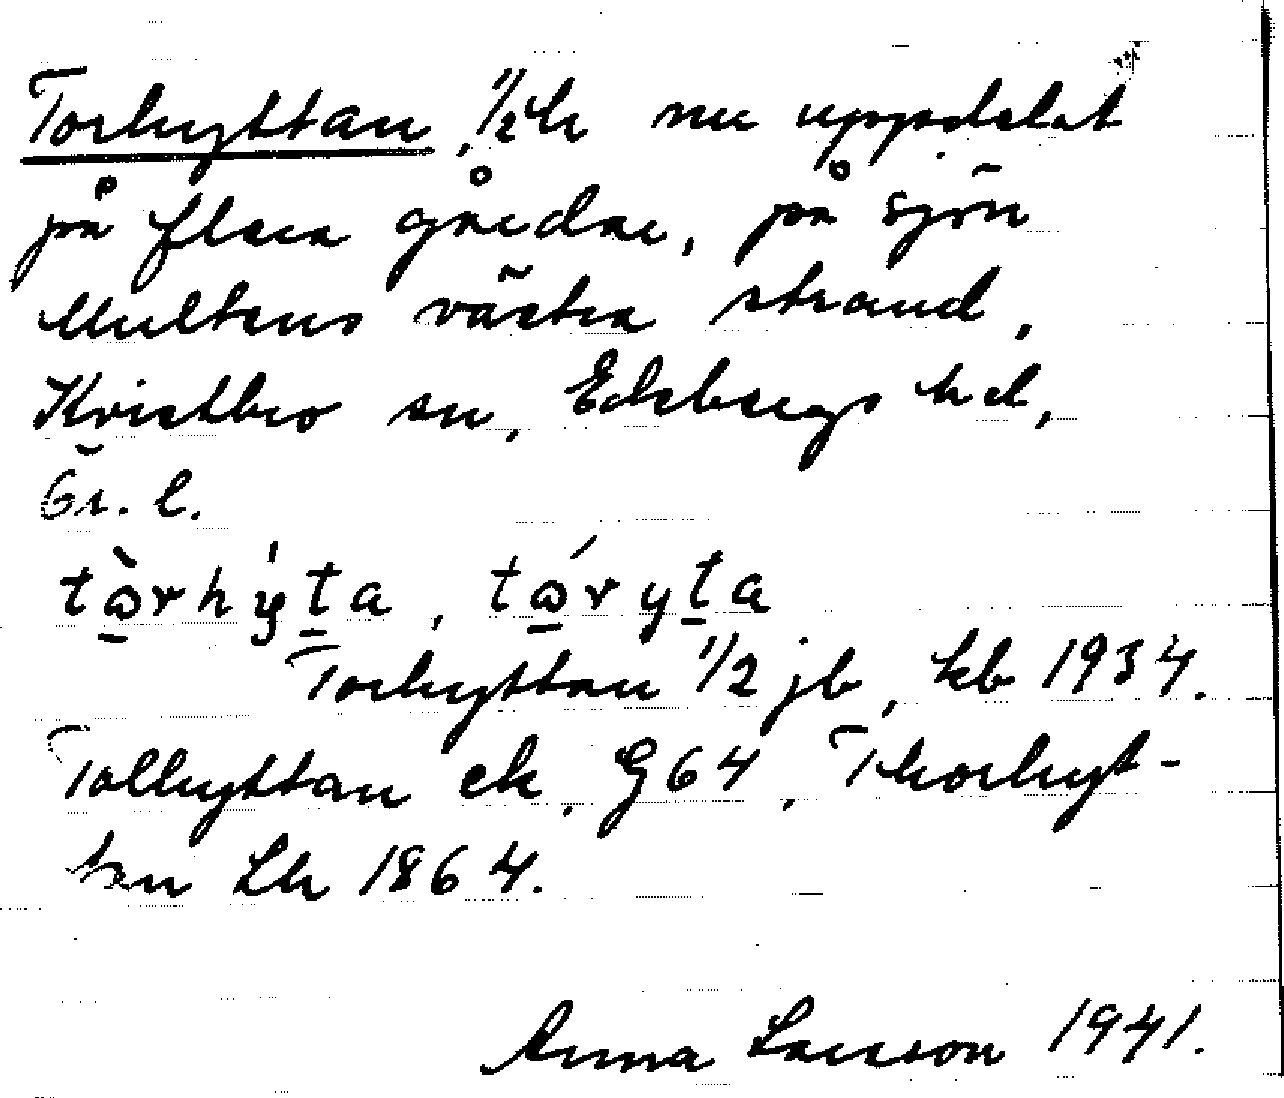 Torhyttan, 1/2 h nu uppdelat
på flera gårdar, på sjön
Multens västra strand,
Kvistbro sn, Edsbergs hd,
Ör. l.
tⱺ̀rhýt̠a, tⱺ́ryt̠a
Torhyttan 1/2 jb, kb 1934.
Tollhyttan ek, G64, Thorhyt-
tan Lh 1864.
Anna Larsson 1941.